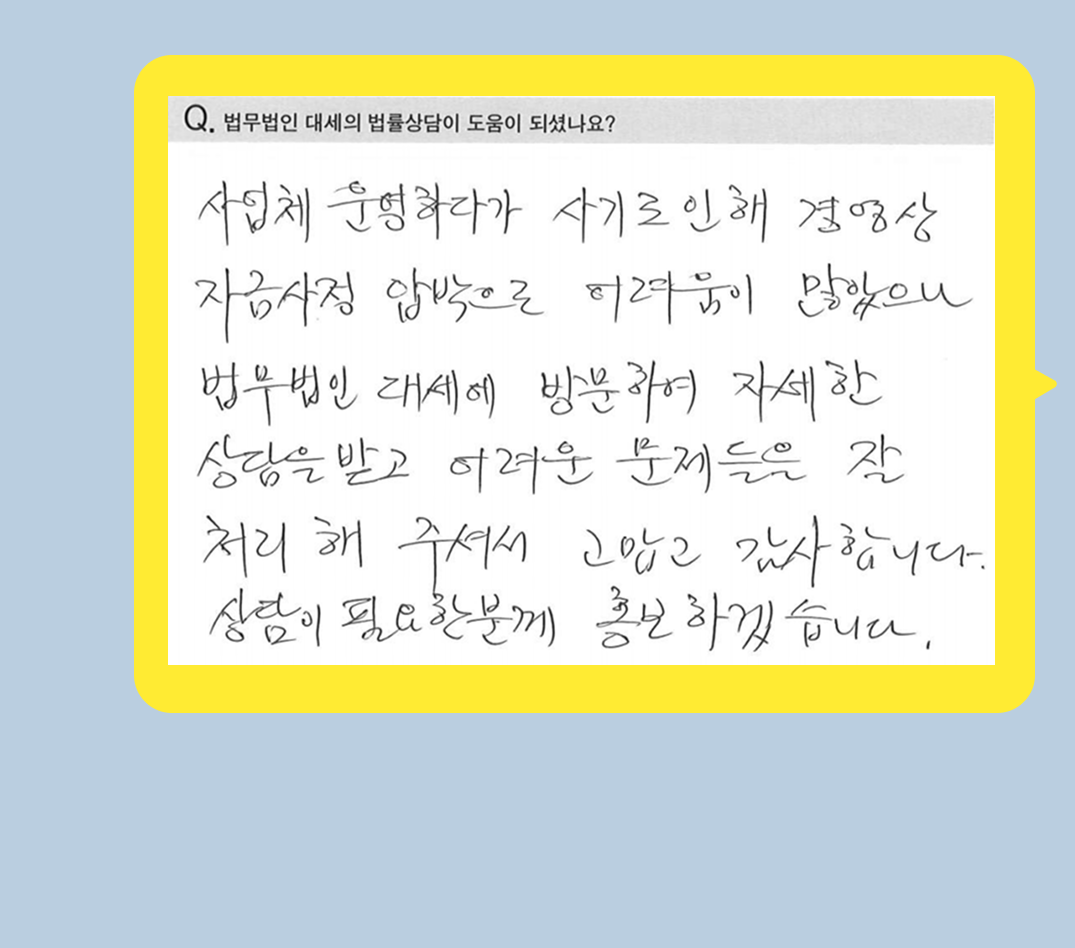 Q. 법무법인 대세의 법률상담이 도움이 되셨나요?
사업체 운영하다가 사기로 인해 경영상
자금사정 압박으로 어려움이 많았으나
법무법인 대세에 방문하여 자세한
상담을 받고 어려운 문제들을 잘
처리 해 주셔서 고맙고 감사합니다.
상담이 필요한분께 홍보하겠습니다.